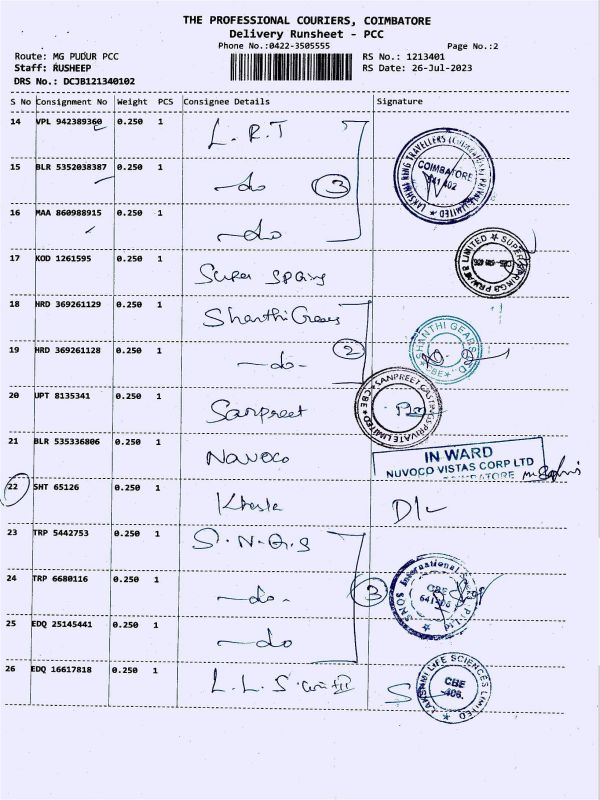 THE PROFESSIONAL COURIERS, COIMBATORE
Delivery Runsheet - PCC
Phone No.:0422-3505555
Page No.:2
Route: MG PUDUR PCC
RS No.: 1213401
Staff: RUSHEEP
RS Date: 26-Jul-2023
DRS No.: DCJB121340102
S No Consignment No Weight PCS Consignee Details Signature
14 VPL 942389360 0.250 1 L.R.T
15 BLR 5352038387 0.250 1 -do 3
LAKSHMI RING TRAVELLERS (Coimbatore) PRIVATE LIMITED
COIMBATORE
641 402
16 MAA 860988915 0.250 1 -do
17 KOD 1261595 0.250 1 Super Spring
18 HRD 369261129 0.250 1 Shanthi Gears
SHANTHI GEARS
CBE
19 HRD 369261128 0.250 1 -do- 2
20 UPT 8135341 0.250 1 Sanpreet
SANPREET CASTINGS PRIVATE LIMITED
CBE
21 BLR 535336806 0.250 1 Nuvoco
IN WARD
NUVOCO VISTAS CORP LTD
22 SHT 65126 0.250 1 D/L
23 TRP 5442753 0.250 1 S.N.Q.S
24 TRP 6680116 0.250 1 -do- 3
SNQS International P. Ltd
CBE
25 EDQ 25145441 0.250 1 -do
26 EDQ 16617818 0.250 1 L.L.S
LAKSHMI LIFE SCIENCES LIMITED
CBE